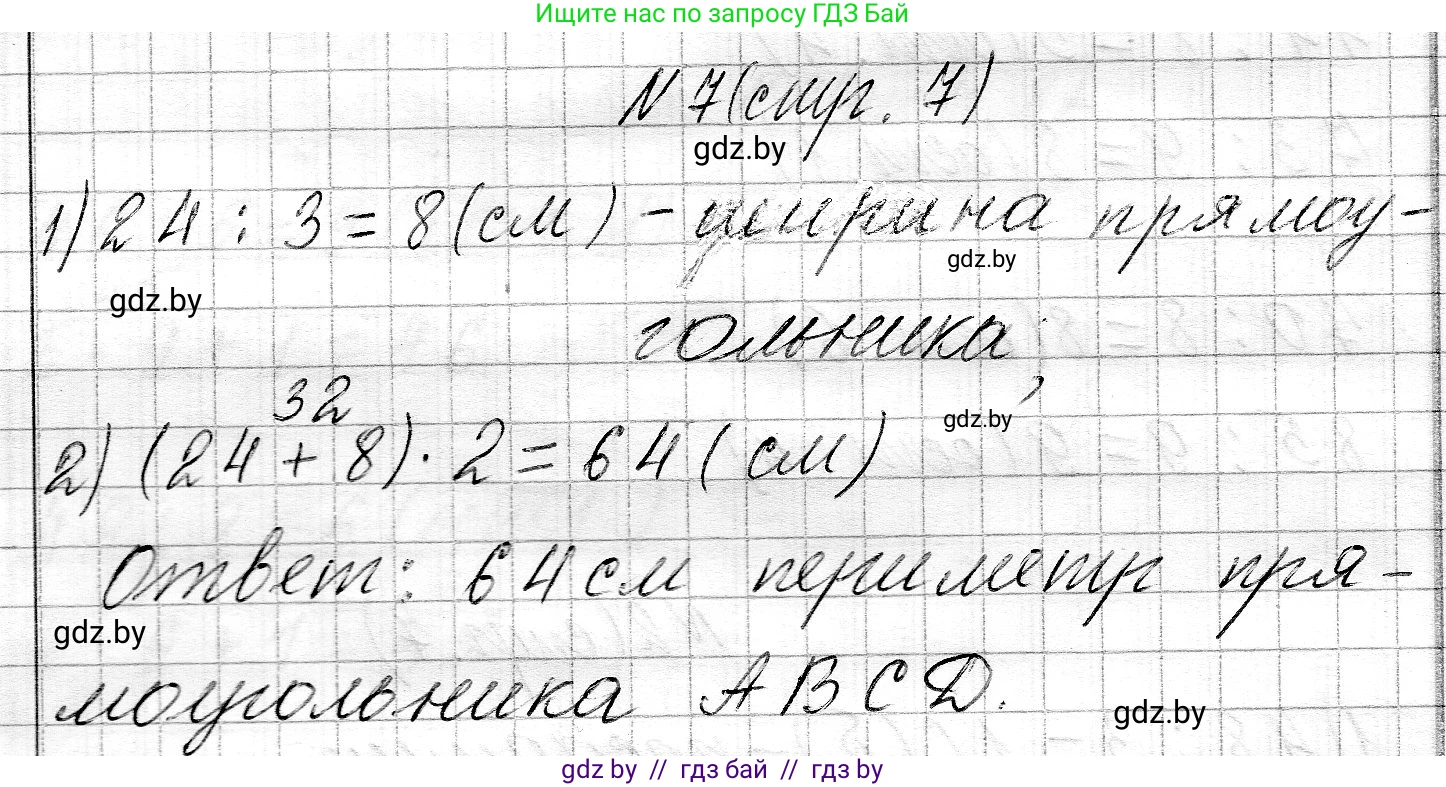 Ищите нас по запросу ГДЗ Бай
N 7 (стр. 7)
gdz.by
1) 24 : 3 = 8 (см) - ширина прямоу-
gdz.by
gdz.by
гольника,
32
gdz.by
2) (24 + 8) · 2 = 64 (см)
Ответ: 64 см периметр пря-
gdz.by
моугольника ABCD.
gdz.by
gdz by // гдз бай // гдз by